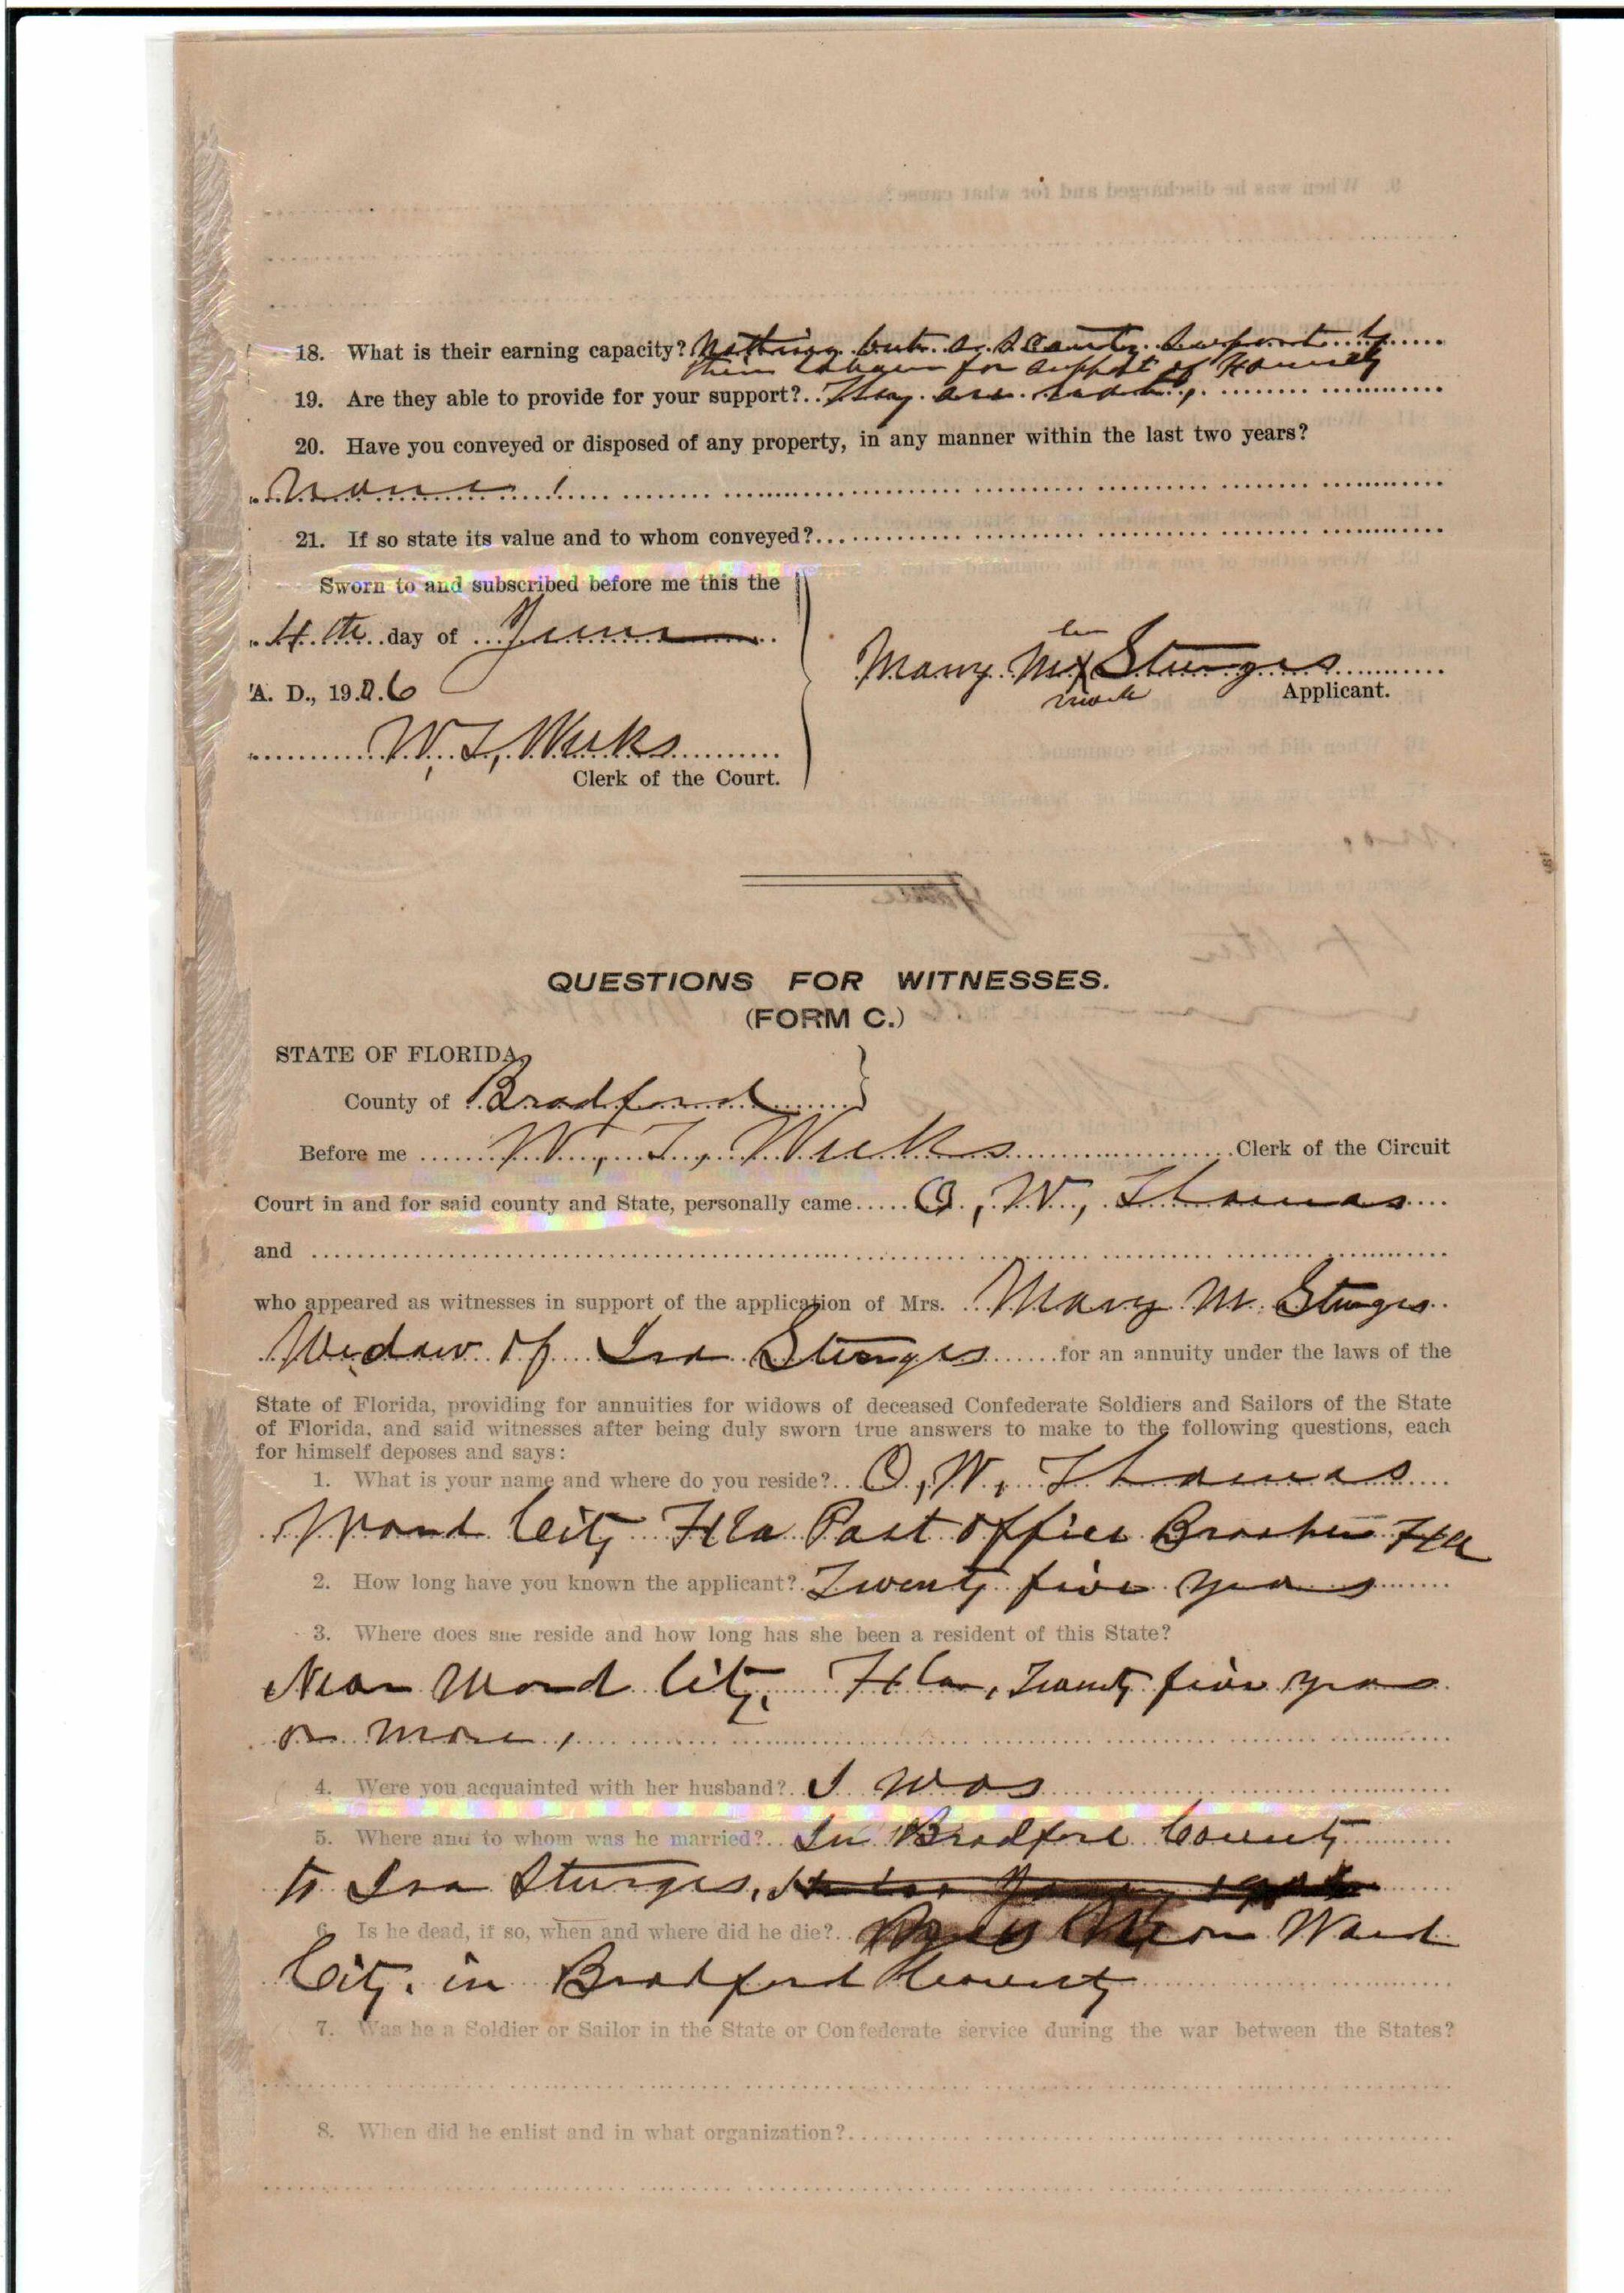 18. What is their earning capacity? Nothing but a scanty support by
their labour for support of Family
19. Are they able to provide for your support? They are not,
20. Have you conveyed or disposed of any property, in any manner within the last two years?
None,
21. If so state its value and to whom conveyed?
Sworn to and subscribed before me this the
4th day of June
A. D., 1906
her
Mary M X Sturges
mark
Applicant.
W. T. Weeks
Clerk of the Court.
QUESTIONS FOR WITNESSES.
(FORM C.)
STATE OF FLORIDA,
County of Bradford
Before me W, T, Weeks Clerk of the Circuit
Court in and for said county and State, personally came O, W, Thomas
and
who appeared as witnesses in support of the application of Mrs. Mary M. Sturges
Widow of Ira Sturges for an annuity under the laws of the
State of Florida, providing for annuities for widows of deceased Confederate Soldiers and Sailors of the State
of Florida, and said witnesses after being duly sworn true answers to make to the following questions, each
for himself deposes and says:
1. What is your name and where do you reside? O, W, Thomas
Ward City Fla Post office Brooker Fla
2. How long have you known the applicant? Twenty five years
3. Where does she reside and how long has she been a resident of this State?
Near Ward City, Fla, Twenty five years
or more,
4. Were you acquainted with her husband? I was
5. Where and to whom was he married? In Bradford County
to Ira Sturges,
6. Is he dead, if so, when and where did he die? Ward
City, in Bradford County
7. Was he a Soldier or Sailor in the State or Confederate service during the war between the States?
8. When did he enlist and in what organization?